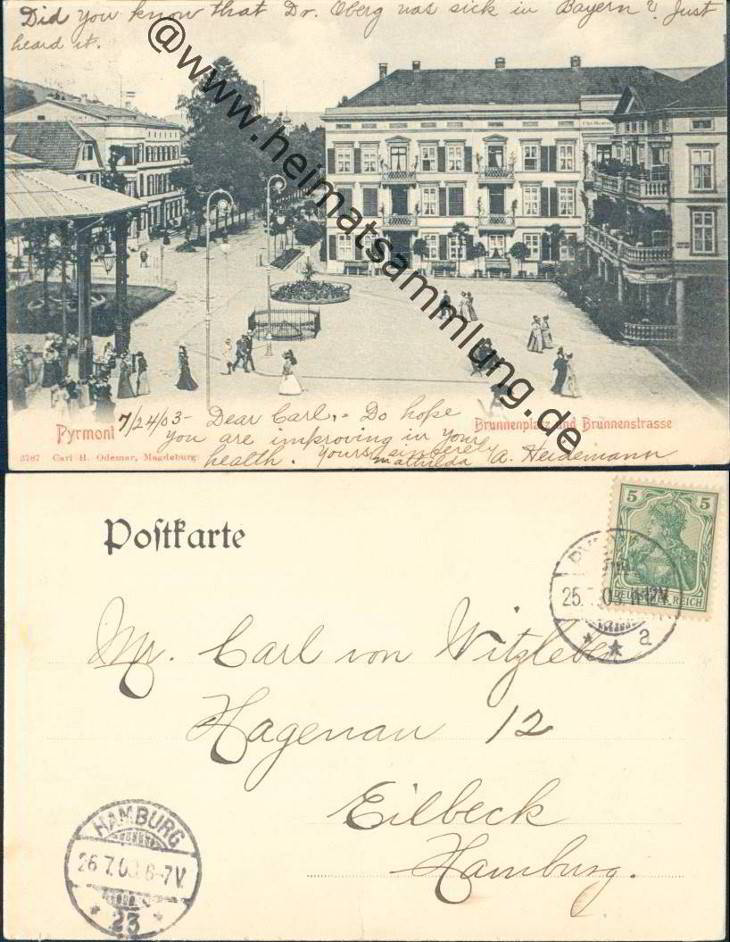 Did you know that Dr. Oberg was sick in Bayern? Just
heard it.
@www.heimatsammlung.de
Pyrmont
7/24/03- Dear Carl,- Do hope
you are improving in your
health. Yours sincerely
Mathilda A. Heidemann
Brunnenplatz und Brunnenstrasse
3787 Carl H. Odemar, Magdeburg.
Poſtkarte
5 5
DEUTSCHES REICH
25.7.03. 11-12V.
a
Mr. Carl von Witzleben
Hagenau 12
Eilbeck
Hamburg.
HAMBURG
26.7.03 6-7V.
* 23 *